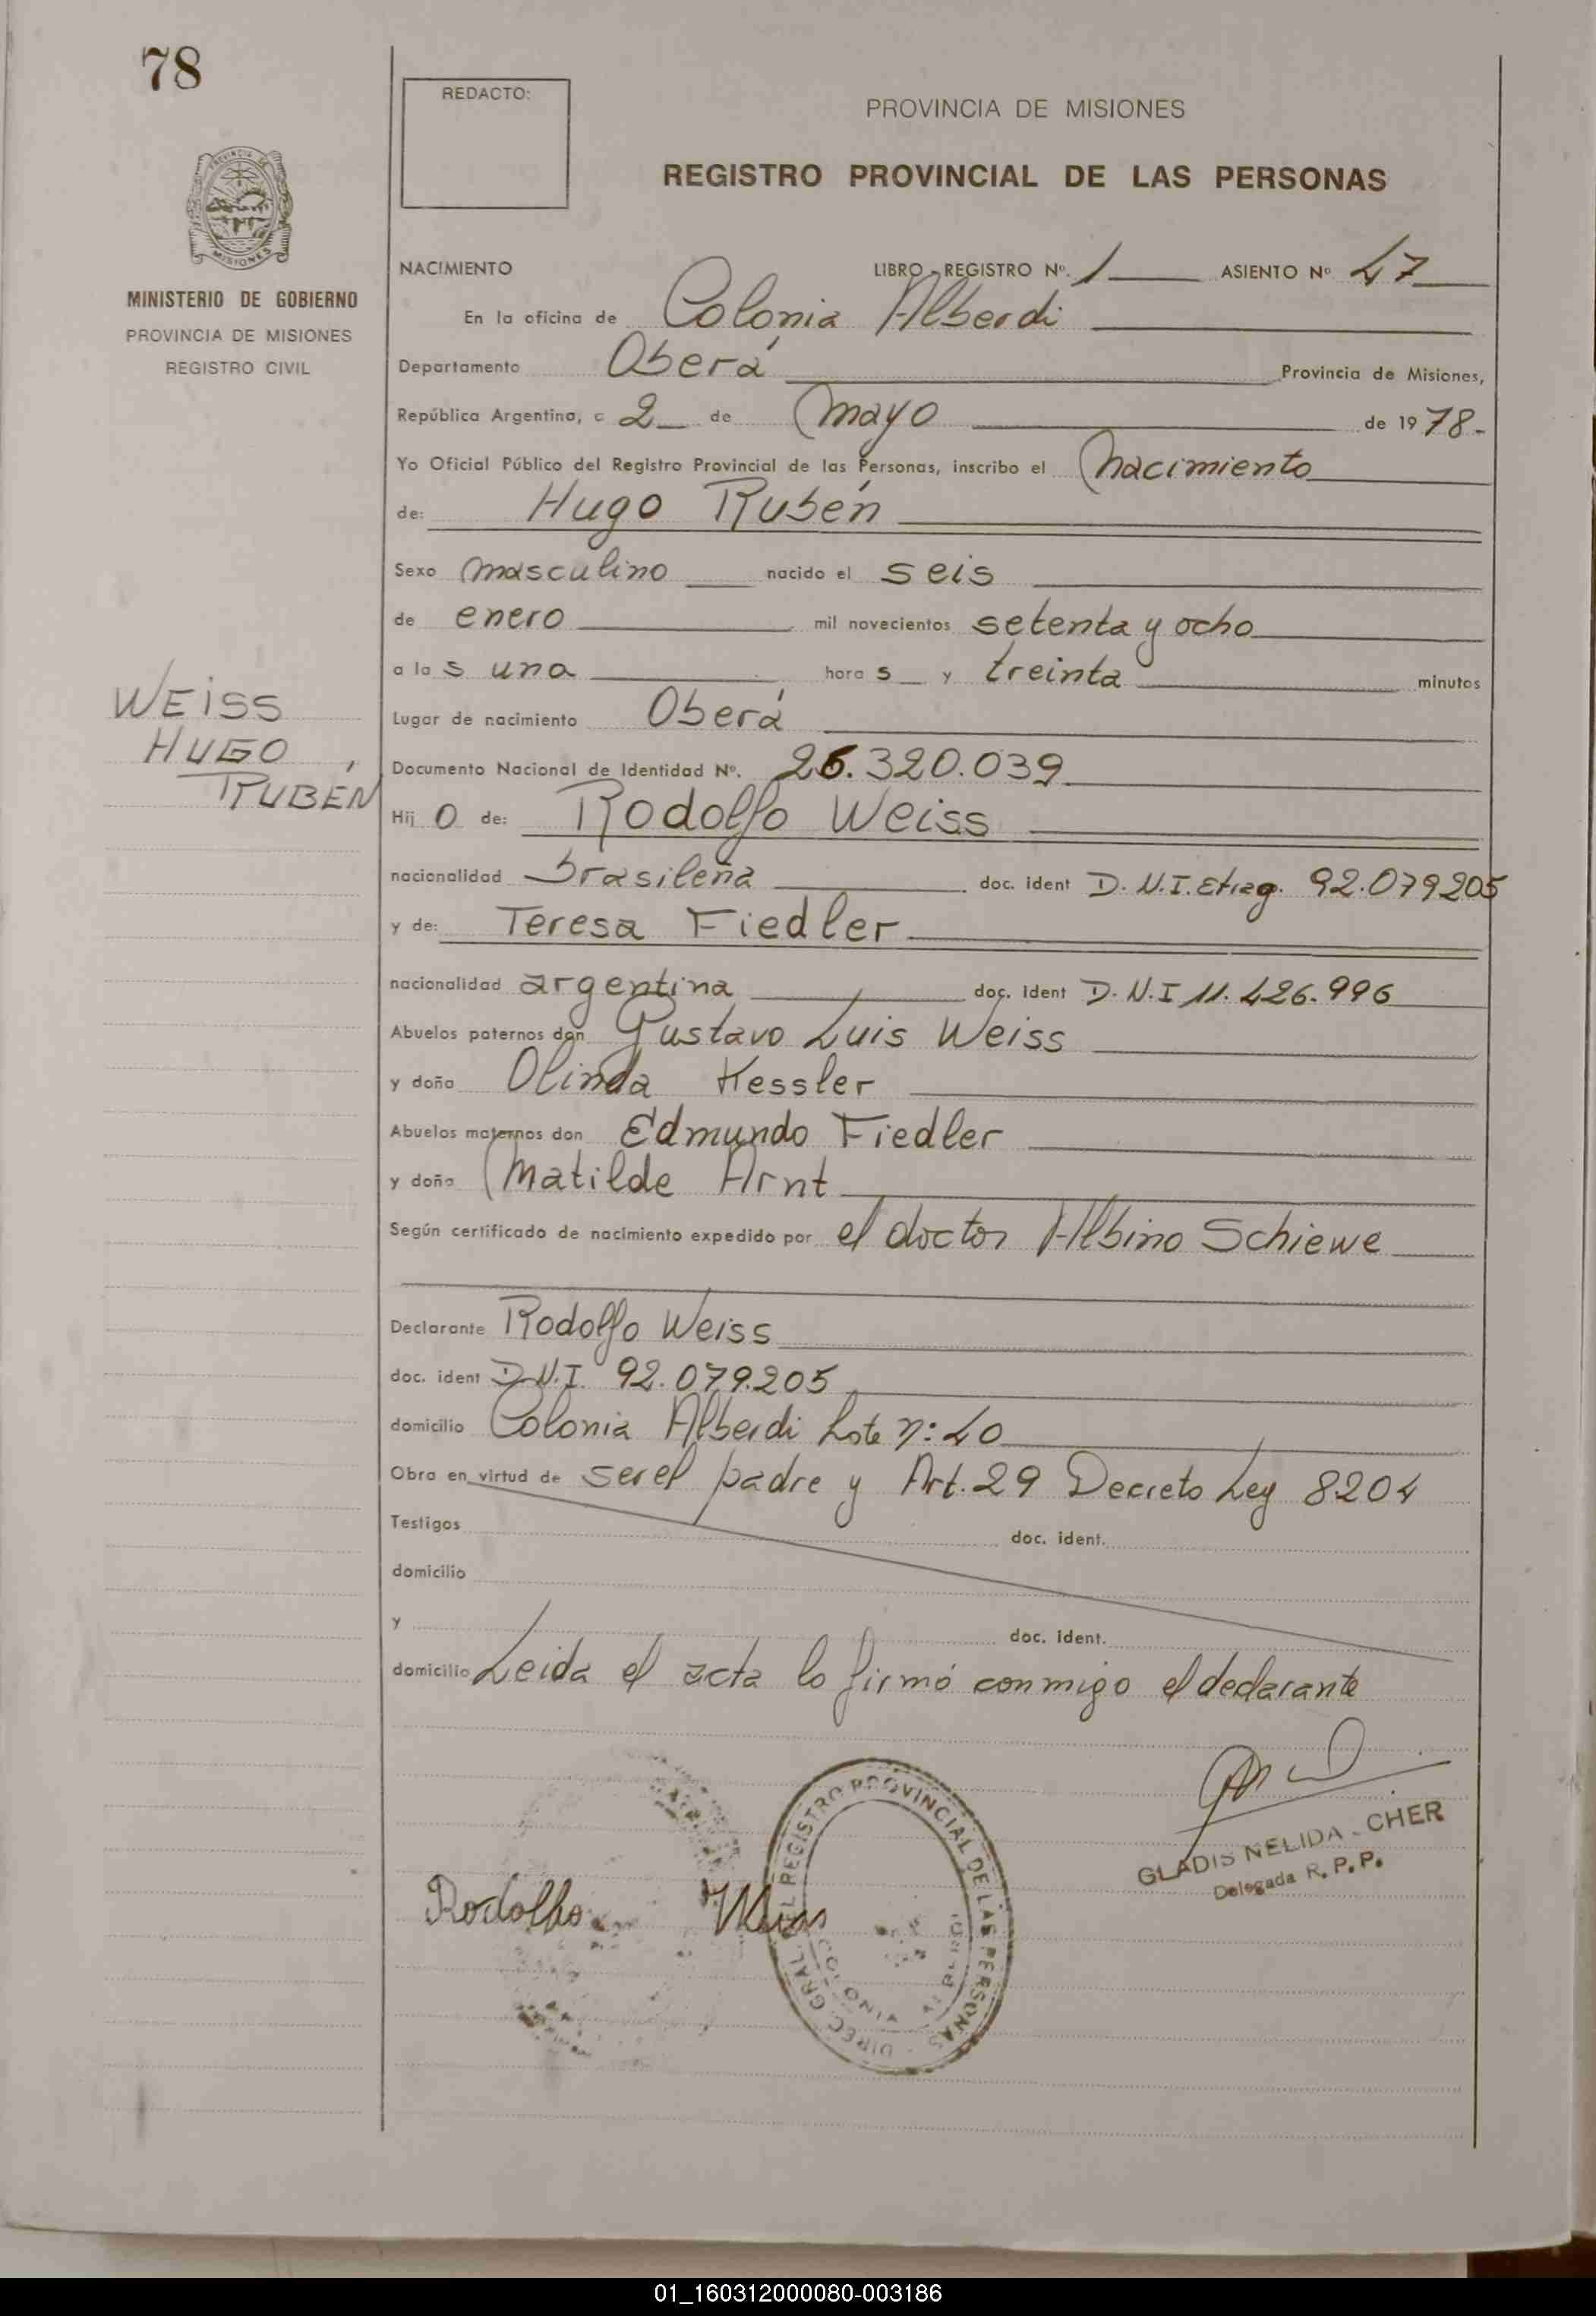 78
REDACTO:
PROVINCIA DE MISIONES
REGISTRO PROVINCIAL DE LAS PERSONAS
MISIONES
MINISTERIO DE GOBIERNO
PROVINCIA DE MISIONES
REGISTRO CIVIL
NACIMIENTO LIBRO - REGISTRO Nº. 1 ASIENTO Nº 47
En la oficina de Colonia Alberdi
Departamento Oberá Provincia de Misiones,
República Argentina, a 2 de mayo de 1978-
Yo Oficial Público del Registro Provincial de las Personas, inscribo el nacimiento
de: Hugo Rubén
Sexo masculino nacido el seis
de enero mil novecientos setenta y ocho
a las una horas y treinta minutos
WEISS
HUGO
RUBÉN
Lugar de nacimiento Oberá
Documento Nacional de Identidad Nº. 26.320.039
Hijo de: Rodolfo Weiss
nacionalidad brasileña doc. ident D.N.I. Etrag. 92.079205
y de: Teresa Fiedler
nacionalidad argentina doc. ident D.N.I 11.426.996
Abuelos paternos don Gustavo Luis Weiss
y doña Olinda Kessler
Abuelos maternos don Edmundo Fiedler
y doña Matilde Arnt
Según certificado de nacimiento expedido por el doctor Albino Schiewe
Declarante Rodolfo Weiss
doc. ident D.N.I. 92.079.205
domicilio Colonia Alberdi Lote n: 40
Obra en virtud de ser el padre y Art. 29 Decreto Ley 8204
Testigos doc. ident.
domicilio
y doc. ident.
domicilio Leida el acta lo firmó conmigo el declarante
GLADIS NELIDA CHER
Delegada R.P.P.
Rodolfo Weiss
DIREC. GRAL. DEL REGISTRO PROVINCIAL DE LAS PERSONAS
COLONIA ALBERDI
01_160312000080-003186